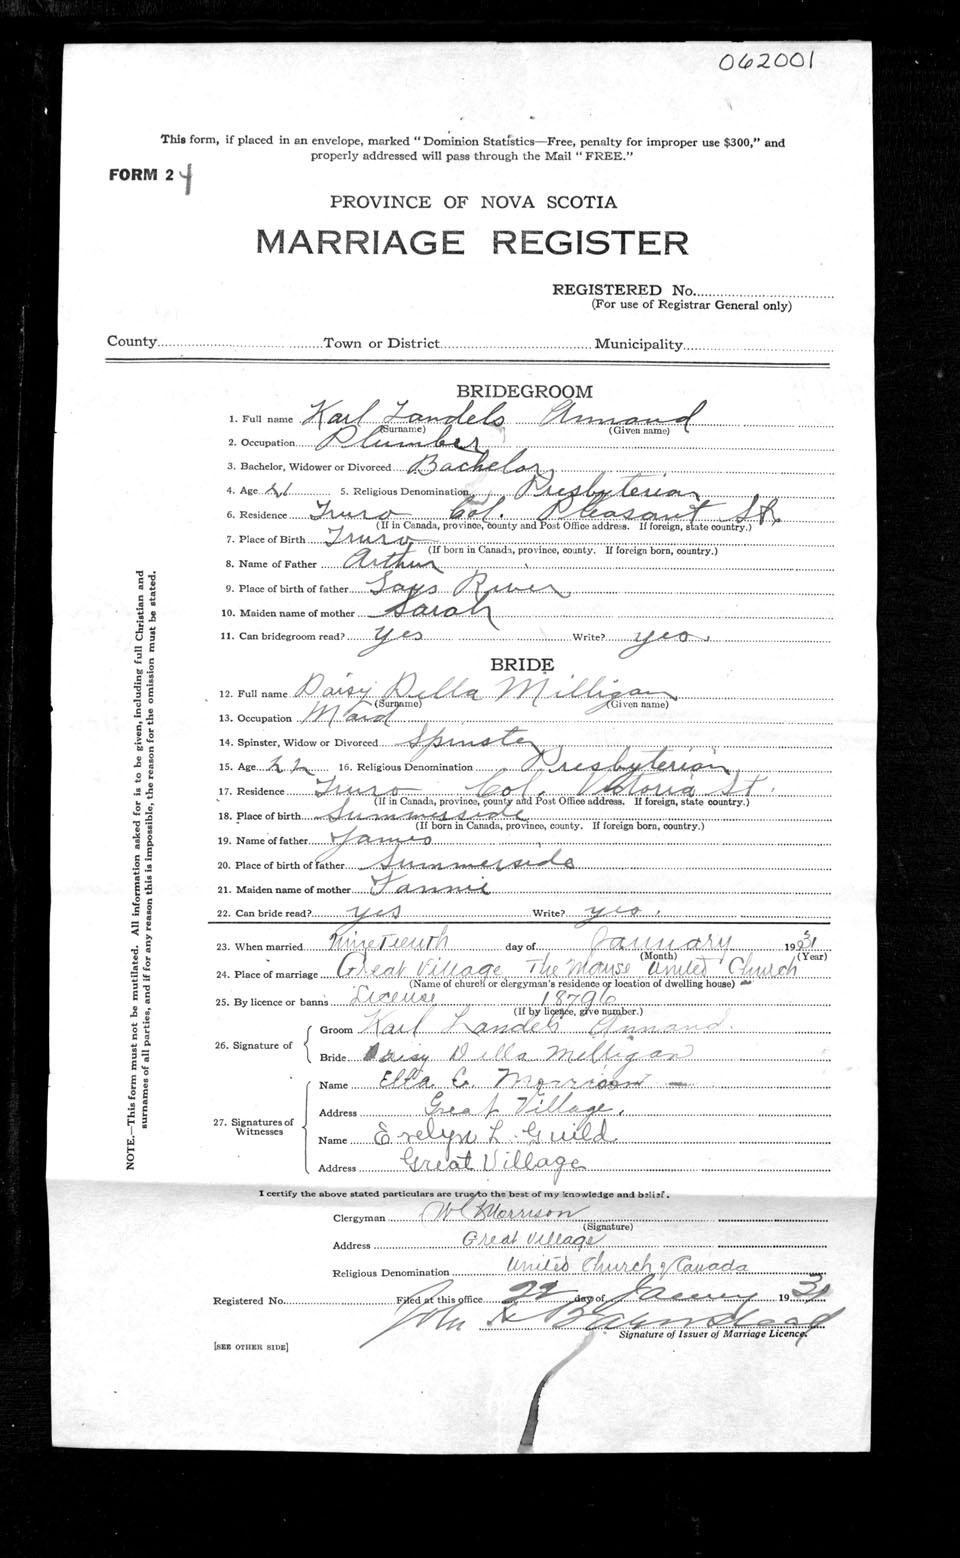 062001
This form, if placed in an envelope, marked "Dominion Statistics—Free, penalty for improper use $300," and
properly addressed will pass through the Mail "FREE."
FORM 24
PROVINCE OF NOVA SCOTIA
MARRIAGE REGISTER
REGISTERED No.
(For use of Registrar General only)
County Town or District Municipality
BRIDEGROOM
1. Full name Karl Landels Annand
(Surname) (Given name)
2. Occupation Plumber
3. Bachelor, Widower or Divorced Bachelor
4. Age 21 5. Religious Denomination Presbyterian
6. Residence Truro Col. Pleasant St.
(If in Canada, province, county and Post Office address. If foreign, state country.)
7. Place of Birth Truro
(If born in Canada, province, county. If foreign born, country.)
8. Name of Father Arthur
9. Place of birth of father Gays River
10. Maiden name of mother Sarah
11. Can bridegroom read? yes Write? yes.
BRIDE
12. Full name Daisy Della Milligan
(Surname) (Given name)
13. Occupation Maid
14. Spinster, Widow or Divorced Spinster
15. Age 22 16. Religious Denomination Presbyterian
17. Residence Truro Col. Victoria St.
(If in Canada, province, county and Post Office address. If foreign, state country.)
18. Place of birth Summerside
(If born in Canada, province, county. If foreign born, country.)
19. Name of father James
20. Place of birth of father Summerside
21. Maiden name of mother Fannie
22. Can bride read? yes Write? yes.
23. When married nineteenth day of January 1931
(Month) (Year)
24. Place of marriage Great Village The Manse United Church
(Name of church or clergyman's residence or location of dwelling house)
25. By licence or banns License 18796
(If by licence, give number.)
26. Signature of Groom Karl Landels Annand.
Bride Daisy Della Milligan
27. Signatures of Witnesses
Name Etta C. Morrison
Address Great Village.
Name Evelyn L. Guild
Address Great Village
I certify the above stated particulars are true to the best of my knowledge and belief.
Clergyman Morrison
(Signature)
Address Great Village
Religious Denomination United Church of Canada
Registered No. Filed at this office 22 day of January 1931
John
Signature of Issuer of Marriage Licence.
[SEE OTHER SIDE]
NOTE.—This form must not be mutilated. All information asked for is to be given, including full Christian and
surnames of all parties, and if for any reason this is impossible, the reason for the omission must be stated.